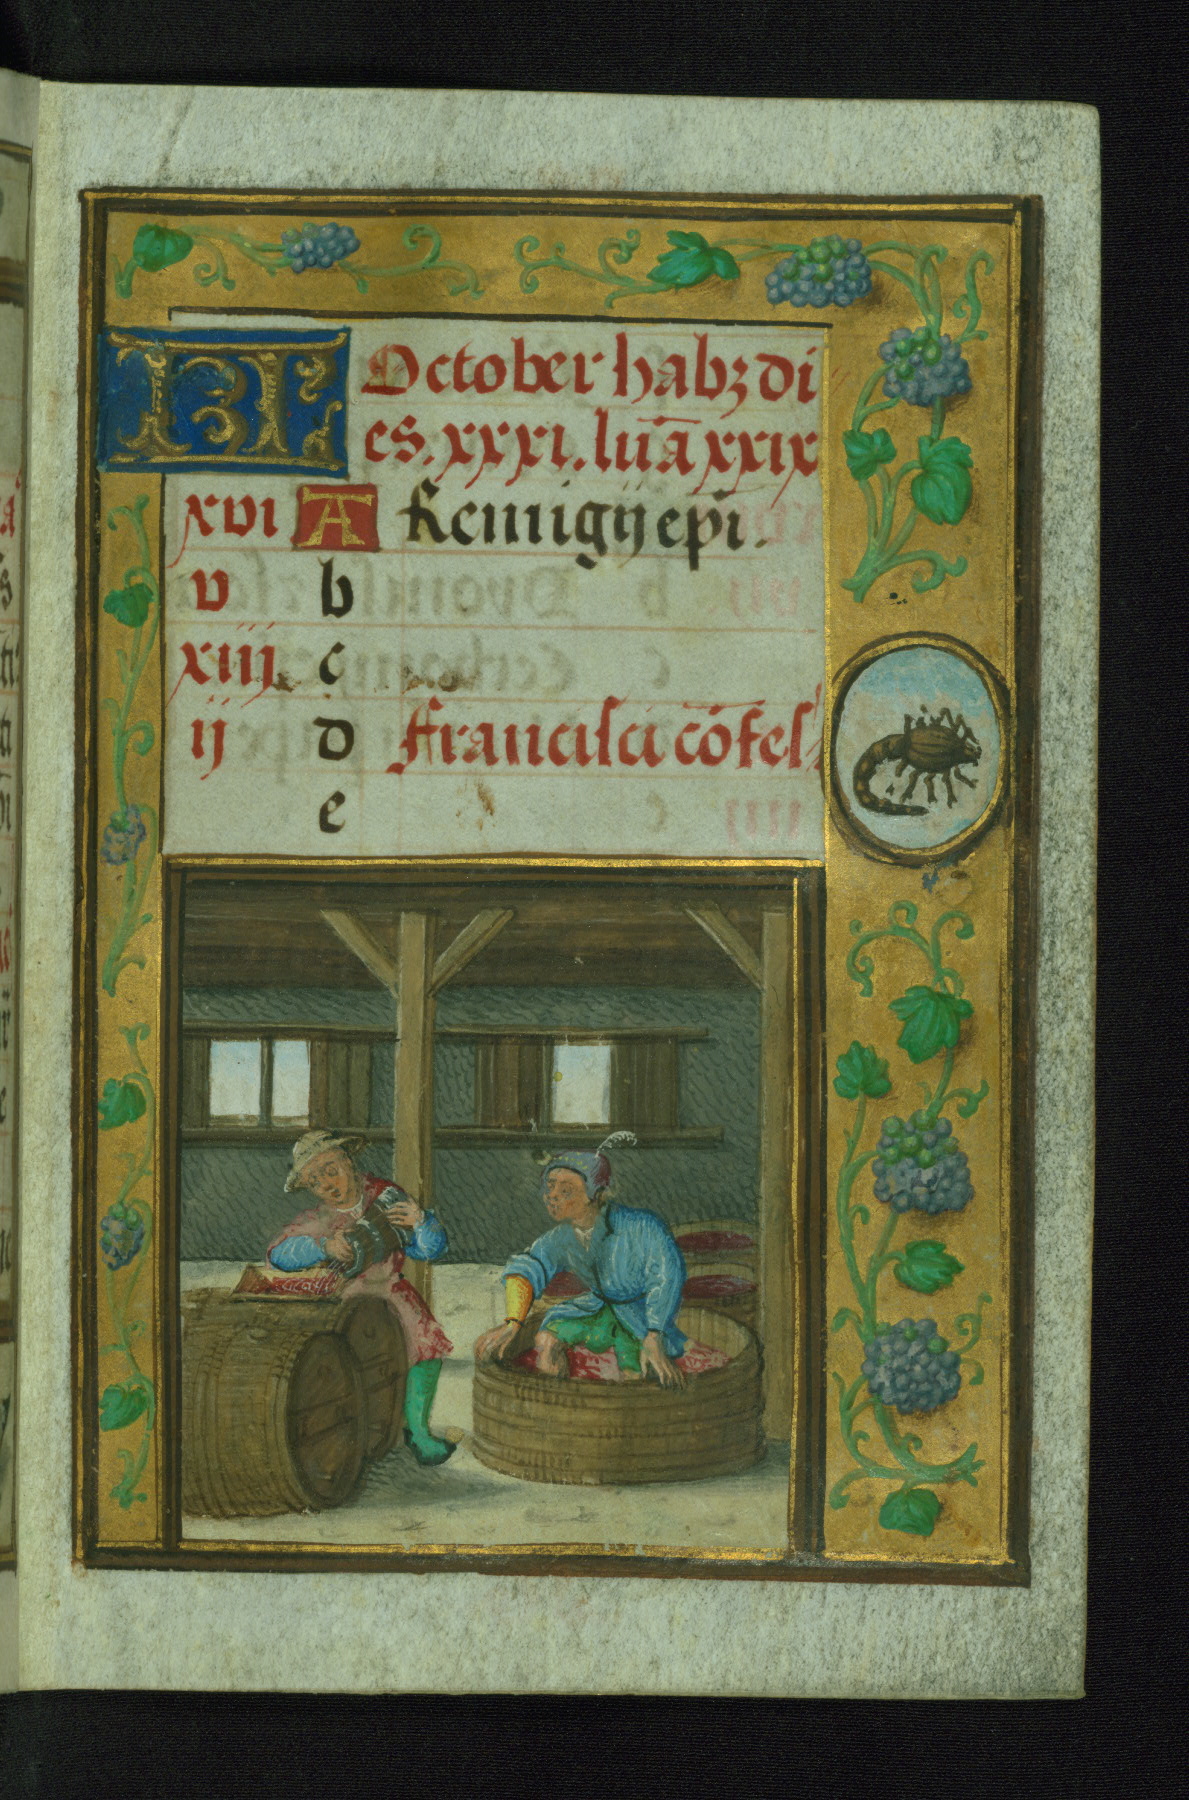 KL October habꝫ di
es. xxxi. lūa xxix
xvi A Remigij ep̄i.
v b
xiij c
ij d Francisci cōfes'
e